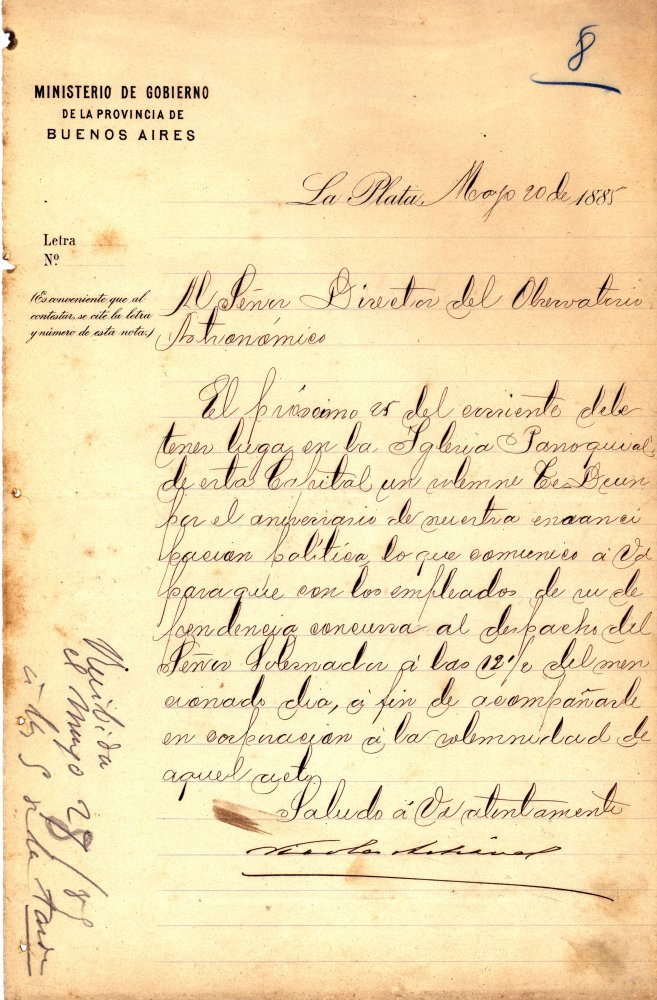 8
MINISTERIO DE GOBIERNO
DE LA PROVINCIA DE
BUENOS AIRES
La Plata, Mayo 20 de 1885
Letra
Nº
(Es conveniente que al
contestar, se cite la letra
y número de esta nota.)
Al Señor Director del Observatorio
Astronómico
El próximo 25 del corriente debe
tener lugar en la Iglesia Parroquial
de esta Capital un solemne Te Deum
por el aniversario de nuestra emanci
pacion política, lo que comunico á Vd
para que con los empleados de su de
pendencia concurra al despacho del
Señor Gobernador á las 12 del men
cionado dia, á fin de acompañarle
en corporacion á la solemnidad de
aquel acto
Saludo á Vd atentamente
Recibida
el Mayo 28/85
á las 5 de la tarde